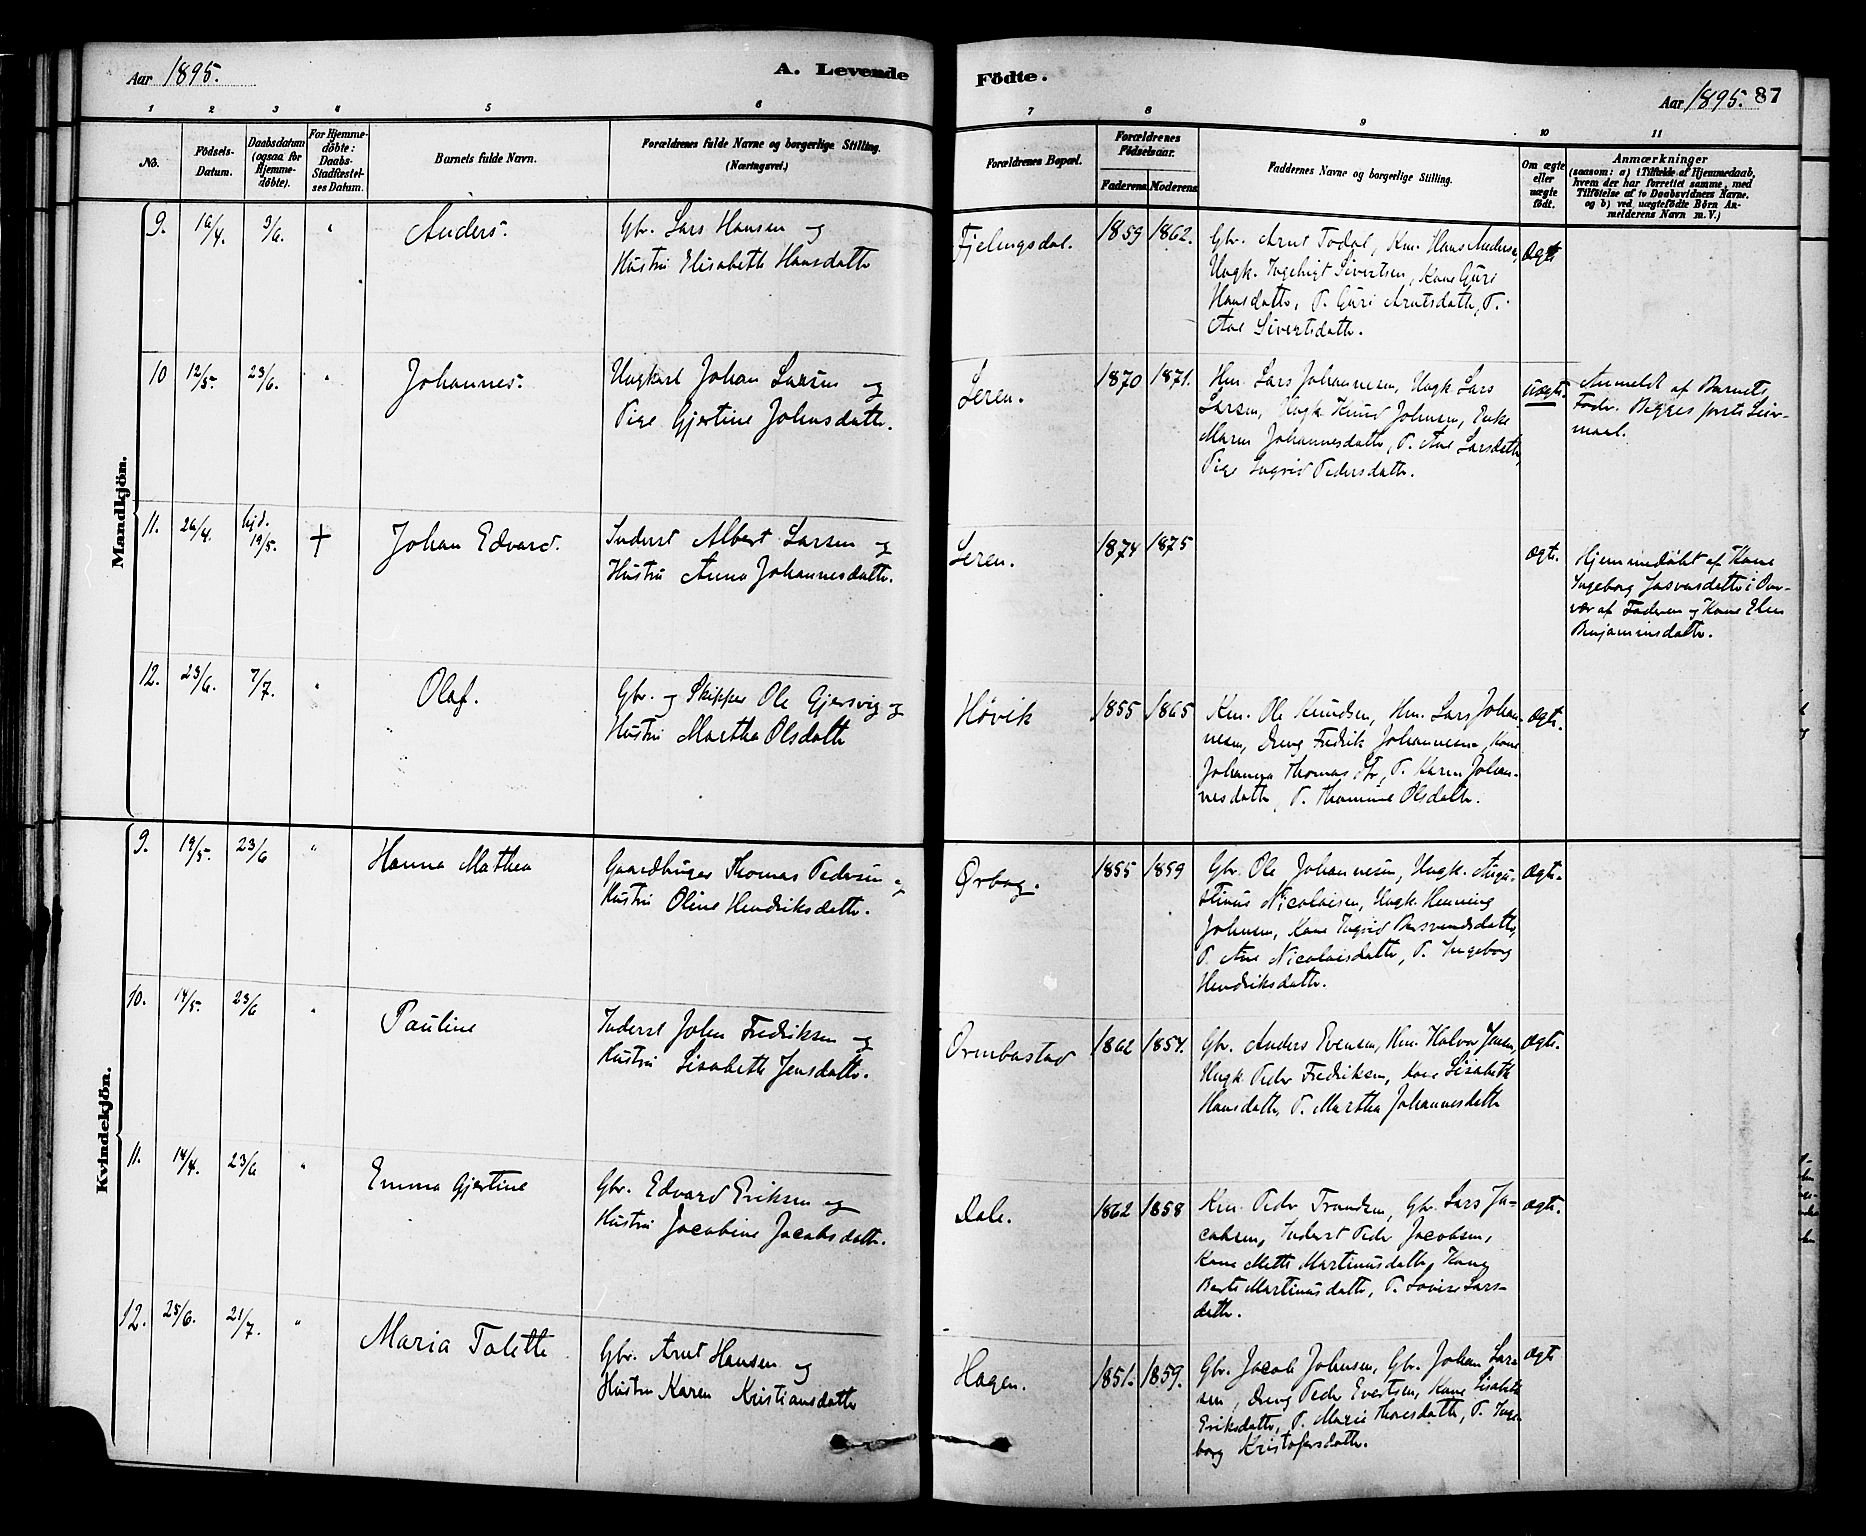 Aar 1895.
A. Levende
Födte.
Aar 1895. 87
1 2 3 4 5 6
7 8 9 10 11
No.
Födsels-
Datum.
Daabsdatum
(ogsaa for
Hjemme-
döbte).
For Hjemme-
döbte:
Daabs-
Stadfæstel-
ses Datum.
Barnets fulde Navn.
Forældrenes fulde Navne og borgerlige Stilling.
(Næringsvei.)
Forældrenes Bopæl.
Forældrenes
Födselsaar.
Faderens. Moderens.
Faddernes Navne og borgerlige Stilling.
Om ægte
eller
uægte
födt.
Anmærkninger
(saasom: a) i Tilfælde af Hjemmedaab,
hvem der har forrettet samme, med
Tilföielse af to Daabsvidners Navne,
og b) ved uægtefödte Börn An-
melderens Navn m. V.)
Mandkjön.
9. 16/4. 9/6. " Anders.
Gbr. Lars Hansen og
Hustru Elisabeth Hansdatter
Fjelingsdal. 1859 1862.
Gbr. Arnt Todal, Km. Hans Andersen,
Ungk. Ingebrigt Sivertsen, Kone Guri
Hansdatter, P. Guri Arntsdatter, P.
Ane Sivertsdatter.
Ægte
10 12/5. 23/6. " Johannes.
Ungkarl Johan Larsen og
Pige Gjertine Johnsdatter.
Leren. 1870 1871.
Hm. Lars Johannesen, Ungk. Lars
Larsen, Ungk. Knud Johnsen, Enke
Maren Johannesdatter, P. Ane Larsdatter,
Pige Ingrid Pedersdatter.
Uægte.
Anmeldt af Barnets
Fader. Begges første Leier-
maal.
11. 26/4. hjd. 19/5. + Johan Edvard.
Inderst Albert Larsen og
Hustru Anna Johannesdatter.
Leren. 1874 1875
Ægte.
Hjemmedøbt af Kone
Ingeborg Jasvasdatter i Over-
vær af Faderen og Kone Elen
Benjaminsdatter.
12. 23/6. 7/7. " Olaf.
Gbr. og Skipper Ole Gjersvig og
Hustru Martha Olsdatter
Høvik 1855 1865
Km. Ole Knudsen, Hm. Lars Johan-
nesen, Dreng Fredrik Johannesen, Kone
Johanna Thomas dtr, P. Karen Johan-
nesdatter, P. Thomine Olsdatter.
Ægte.
Kvindekjön.
9. 19/5. 23/6 " Hanna Mathea
Gaardbruger Thomas Pedersen og
Hustru Oline Hendriksdatter.
Ørbog. 1855 1859
Gbr. Ole Johannesen, Ungk. Augu-
stinus Nicolaisen, Ungk. Henning
Johnsen, Kone Ingrid Barsvendsdatter,
P. Ane Nicolaisdatter, P. Ingeborg
Hendriksdatter.
Ægte.
10. 14/5. 23/6 " Pauline
Inderst Johan Fredriksen og
Hustru Lisabeth Jensdatter.
Ormbostad 1862 1854.
Gbr. Anders Evensen, Km. Halvor Jensen,
Ungk. Peder Fredriksen, Kone Lisabeth
Hansdatter, P. Martha Johannesdatter
Ægte.
11. 14/4. 23/6 " Emma Gjertine
Gbr. Edvard Eriksen og
Hustru Jacobine Jacobsdatter.
Dale. 1862 1858
Km. Peder Trondsen, Gbr. Lars Ja-
cobsen, Inderst Peder Jacobsen,
Kone Mette Martinusdatter, Kone
Berte Martinusdatter, P. Lovise Lars-
datter.
Ægte.
12. 25/6. 21/7. " Maria Tolette
Gbr. Arnt Hansen og
Hustru Karen Kristiansdatter
Hagen. 1851. 1859.
Gbr. Jacob Johnsen, Gbr. Johan Lar-
sen, Dreng Peder Evertsen, Kone Lisabeth
Eriksdatter, P. Marie Thoresdatter, P. Inge-
borg Kristofersdatter.
Ægte